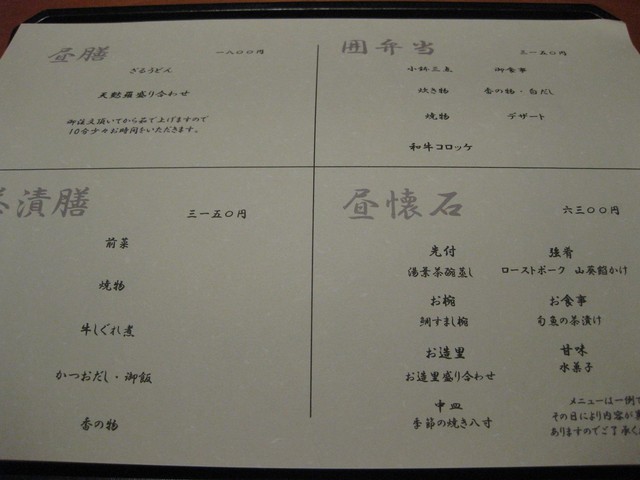 昼膳 一六〇〇円
ざるうどん
天麩羅盛り合わせ
御注文頂いてから茹で上げますので
10分少々お時間をいただきます。
囲弁当 三一五〇円
小鉢三点 御食事
炊き物 香の物・白だし
焼物 デザート
和牛コロッケ
茶漬膳 三一五〇円
前菜
焼物
牛しぐれ煮
かつおだし・御飯
香の物
昼懐石 六三〇〇円
先付 強肴
湯葉茶碗蒸し ローストポーク 山葵餡かけ
お椀 お食事
鯛すまし椀 旬魚の茶漬け
お造里 甘味
お造里盛り合わせ 水菓子
中皿
季節の焼き八寸
メニューは一例で
その日により内容が異
ありますのでご了承く